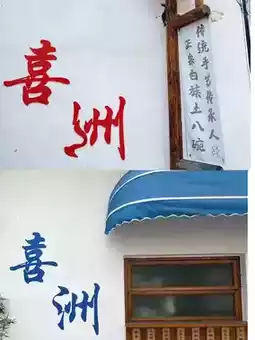 喜洲
传统手艺传承人
正宗白族土八碗
喜洲